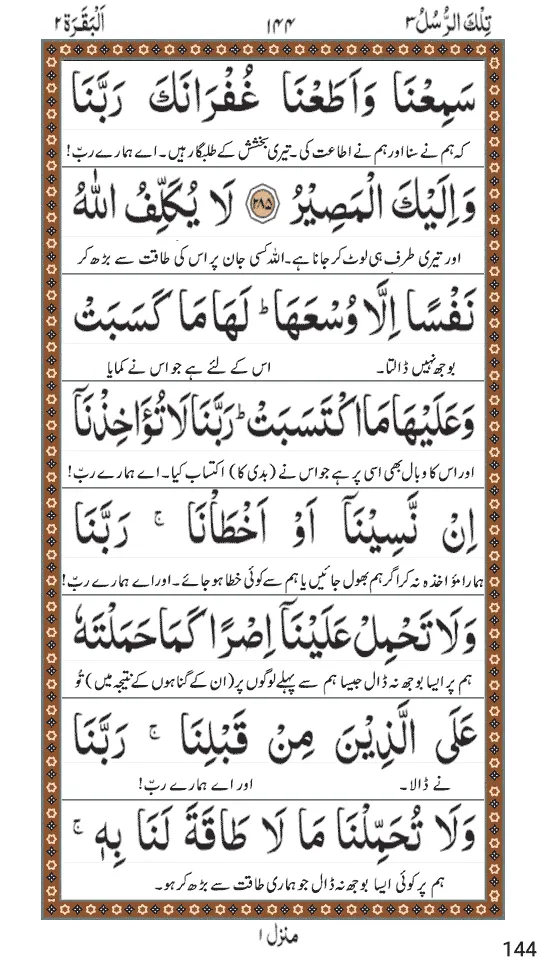 تِلْكَ الرُّسُلُ ٣ ١٤٤ اَلْبَقَرَة ٢
سَمِعْنَا وَاَطَعْنَا غُفْرَانَكَ رَبَّنَا
کہ ہم نے سنا اور ہم نے اطاعت کی۔ تیری بخشش کے طلبگار ہیں۔ اے ہمارے ربّ!
وَاِلَيْكَ الْمَصِيْرُ ﴿۲۸۵﴾ لَا يُكَلِّفُ اللّٰهُ
اور تیری طرف ہی لوٹ کر جانا ہے۔ اللہ کسی جان پر اس کی طاقت سے بڑھ کر
نَفْسًا اِلَّا وُسْعَهَا ؕ لَهَا مَا كَسَبَتْ
بوجھ نہیں ڈالتا۔ اس کے لئے ہے جو اس نے کمایا
وَعَلَيْهَا مَا اكْتَسَبَتْ ؕ رَبَّنَا لَا تُؤَاخِذْنَآ
اور اس کا وبال بھی اسی پر ہے جو اس نے (بدی کا) اکتساب کیا۔ اے ہمارے ربّ!
اِنْ نَّسِيْنَآ اَوْ اَخْطَاْنَا ۚ رَبَّنَا
ہمارا مؤاخذہ نہ کر اگر ہم بھول جائیں یا ہم سے کوئی خطا ہو جائے۔ اور اے ہمارے ربّ!
وَلَا تَحْمِلْ عَلَيْنَآ اِصْرًا كَمَا حَمَلْتَهٗ
ہم پر ایسا بوجھ نہ ڈال جیسا ہم سے پہلے لوگوں پر (ان کے گناہوں کے نتیجہ میں) تُو
عَلَى الَّذِيْنَ مِنْ قَبْلِنَا ۚ رَبَّنَا
نے ڈالا۔ اور اے ہمارے ربّ!
وَلَا تُحَمِّلْنَا مَا لَا طَاقَةَ لَنَا بِهٖ ۚ
ہم پر کوئی ایسا بوجھ نہ ڈال جو ہماری طاقت سے بڑھ کر ہو۔
منزل ۱
144